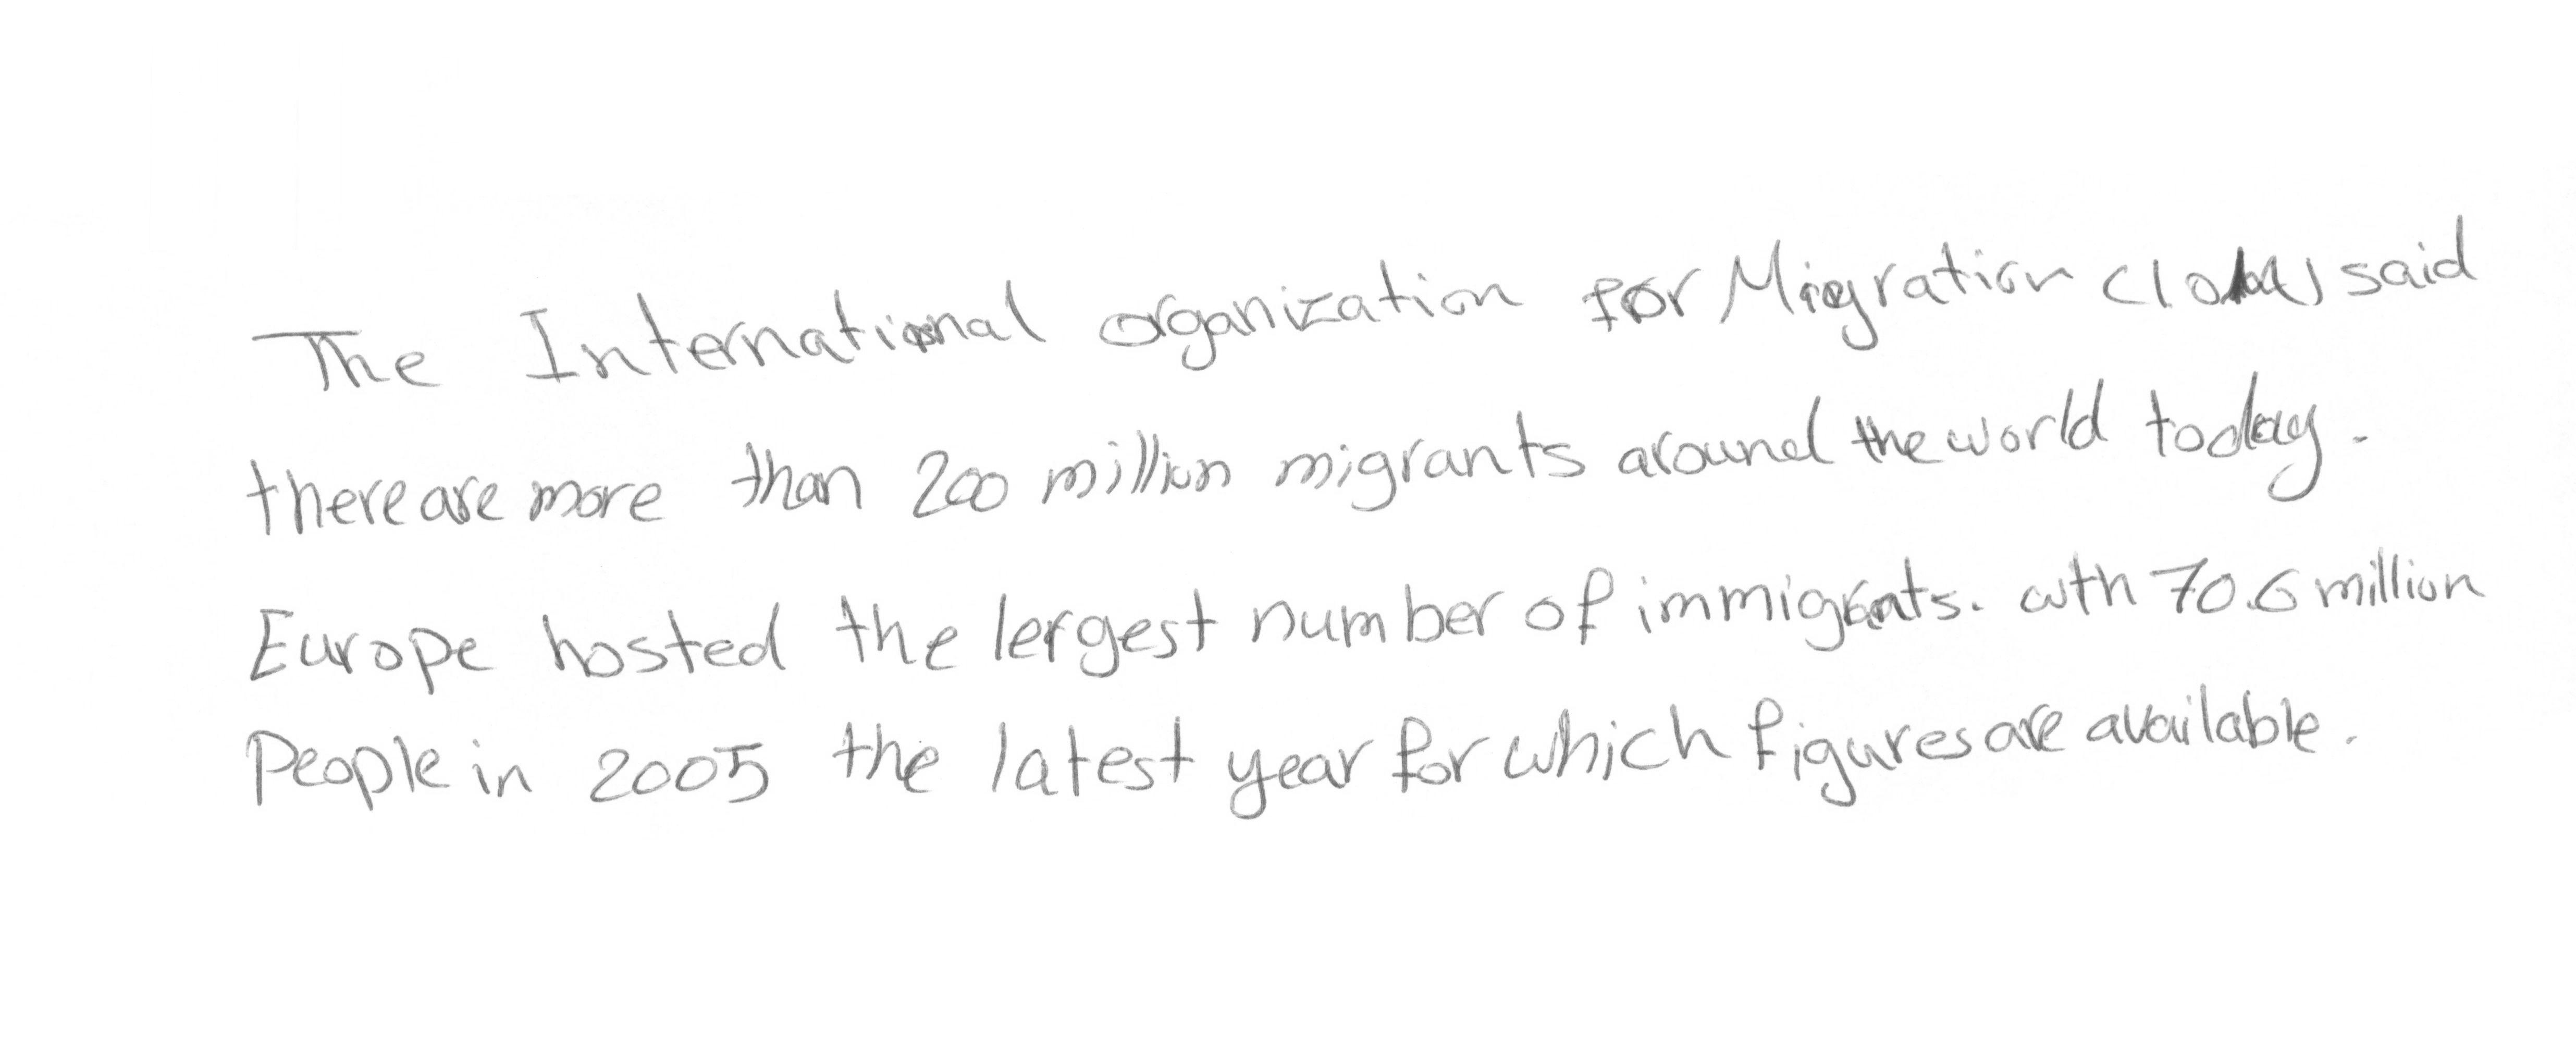 The International organization for Migration said
there are more than 200 million migrants around the world today.
Europe hosted the lergest number of immigrants. wth 70.6 million
People in 2005 the latest year for which figures are available.